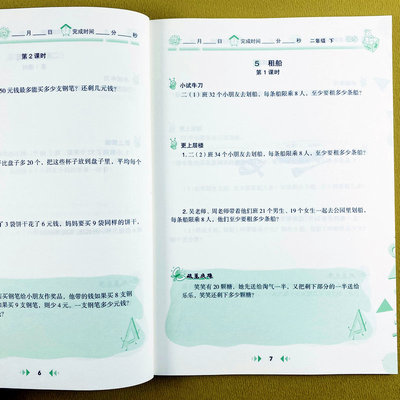 ____月____日 完成时间____分____秒
第 2 课时
50 元钱最多能买多少支钢笔？还剩几元钱？
比盘子多 20 个，把这些杯子放到盘子里，平均每个
了 3 袋饼干花了 6 元钱，妈妈要买 9 袋同样的饼干，
买钢笔给小朋友作奖品，他带的钱如果买 8 支钢
买 9 支钢笔，则少 4 元。一支钢笔多少元钱？
6
____月____日 完成时间____分____秒 二年级 下
5 租船
第 1 课时
小试牛刀
二（1）班 32 个小朋友去划船，每条船限乘 8 人，至少要租多少条船？
更上层楼
1. 二（2）班 34 个小朋友去划船，每条船限乘 8 人，至少要租多少条船？
2. 吴老师、周老师带着他们班 21 个男生、19 个女生一起去公园里划船，
每条船限乘 8 人，他们至少要租多少条船？
破茧成蝶
笑笑有 20 颗糖，她先送给淘气一半，又把剩下部分的一半送给
乐乐，笑笑还剩下多少颗糖？
7